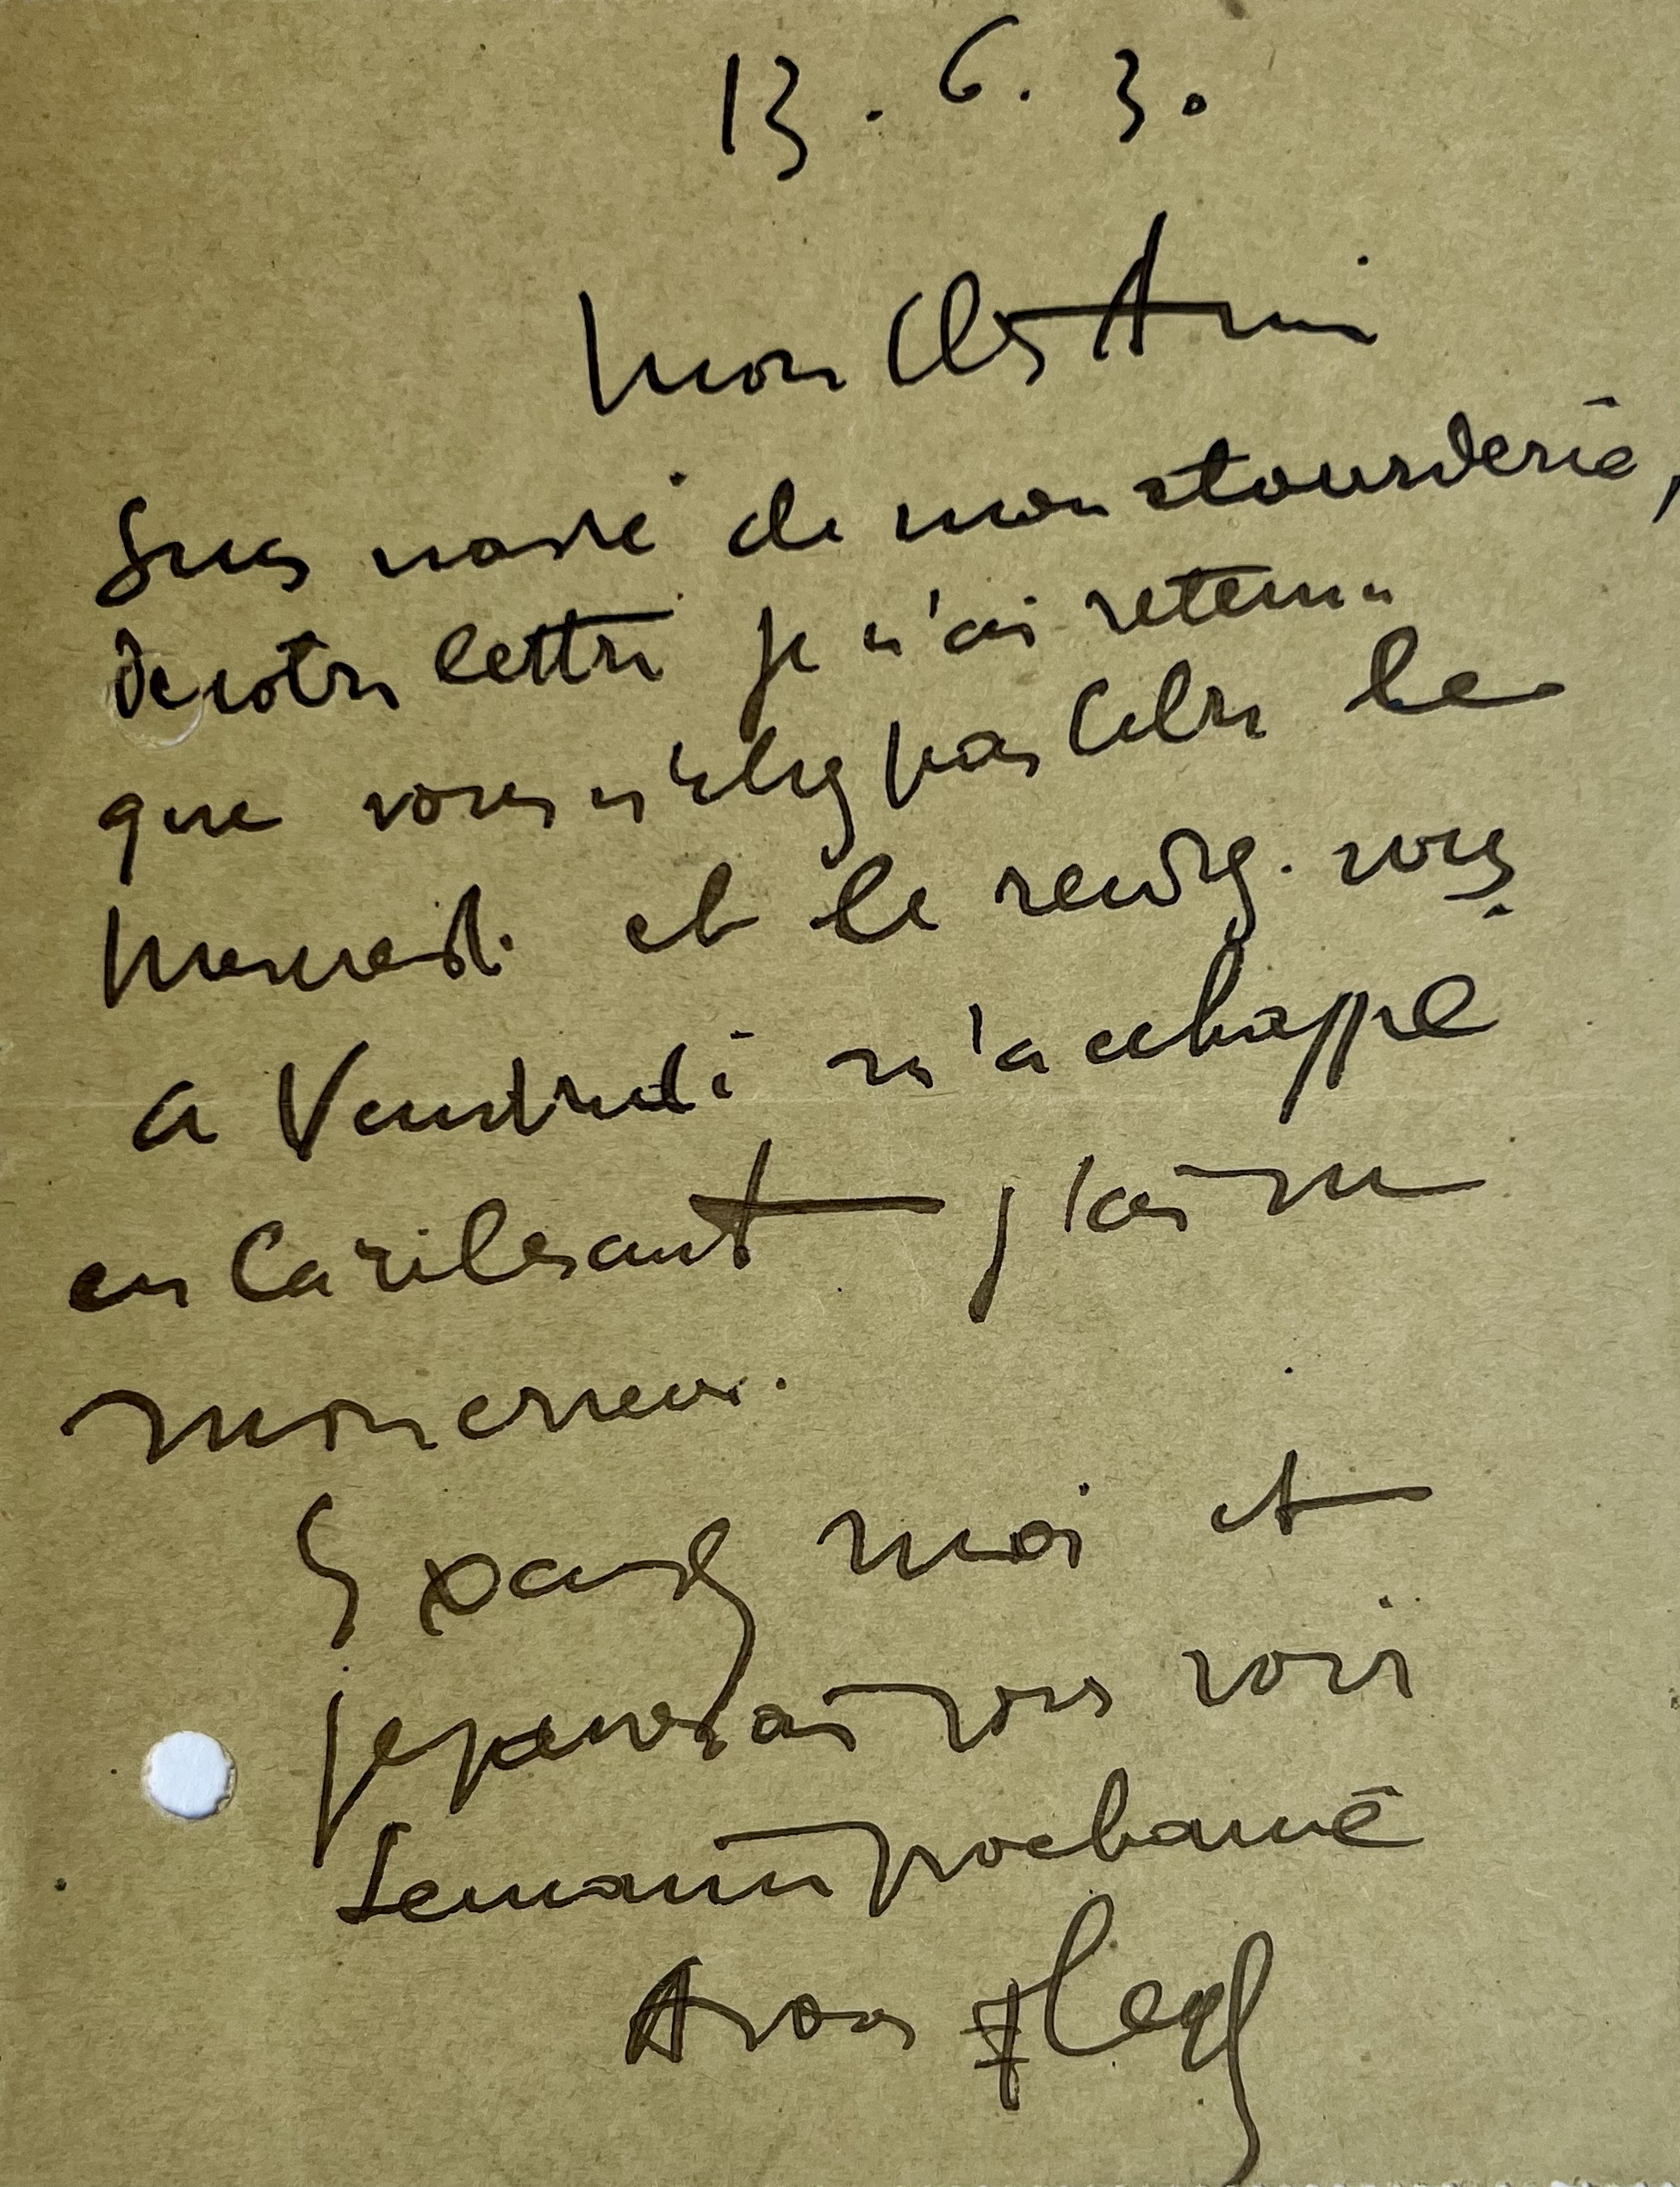 13. 6. 3.
Mon Cher Ami
Suis navré de mon etourderie,
de votre lettre je n'ai retenu
que vous n'etiez pas libre le
Mercredi et le rendez-vous
a Vendredi m'a echappé
en la relisant j'ai vu
mon erreur.
Excusez moi et
je pense vous voir
Semaine prochaine
A vous